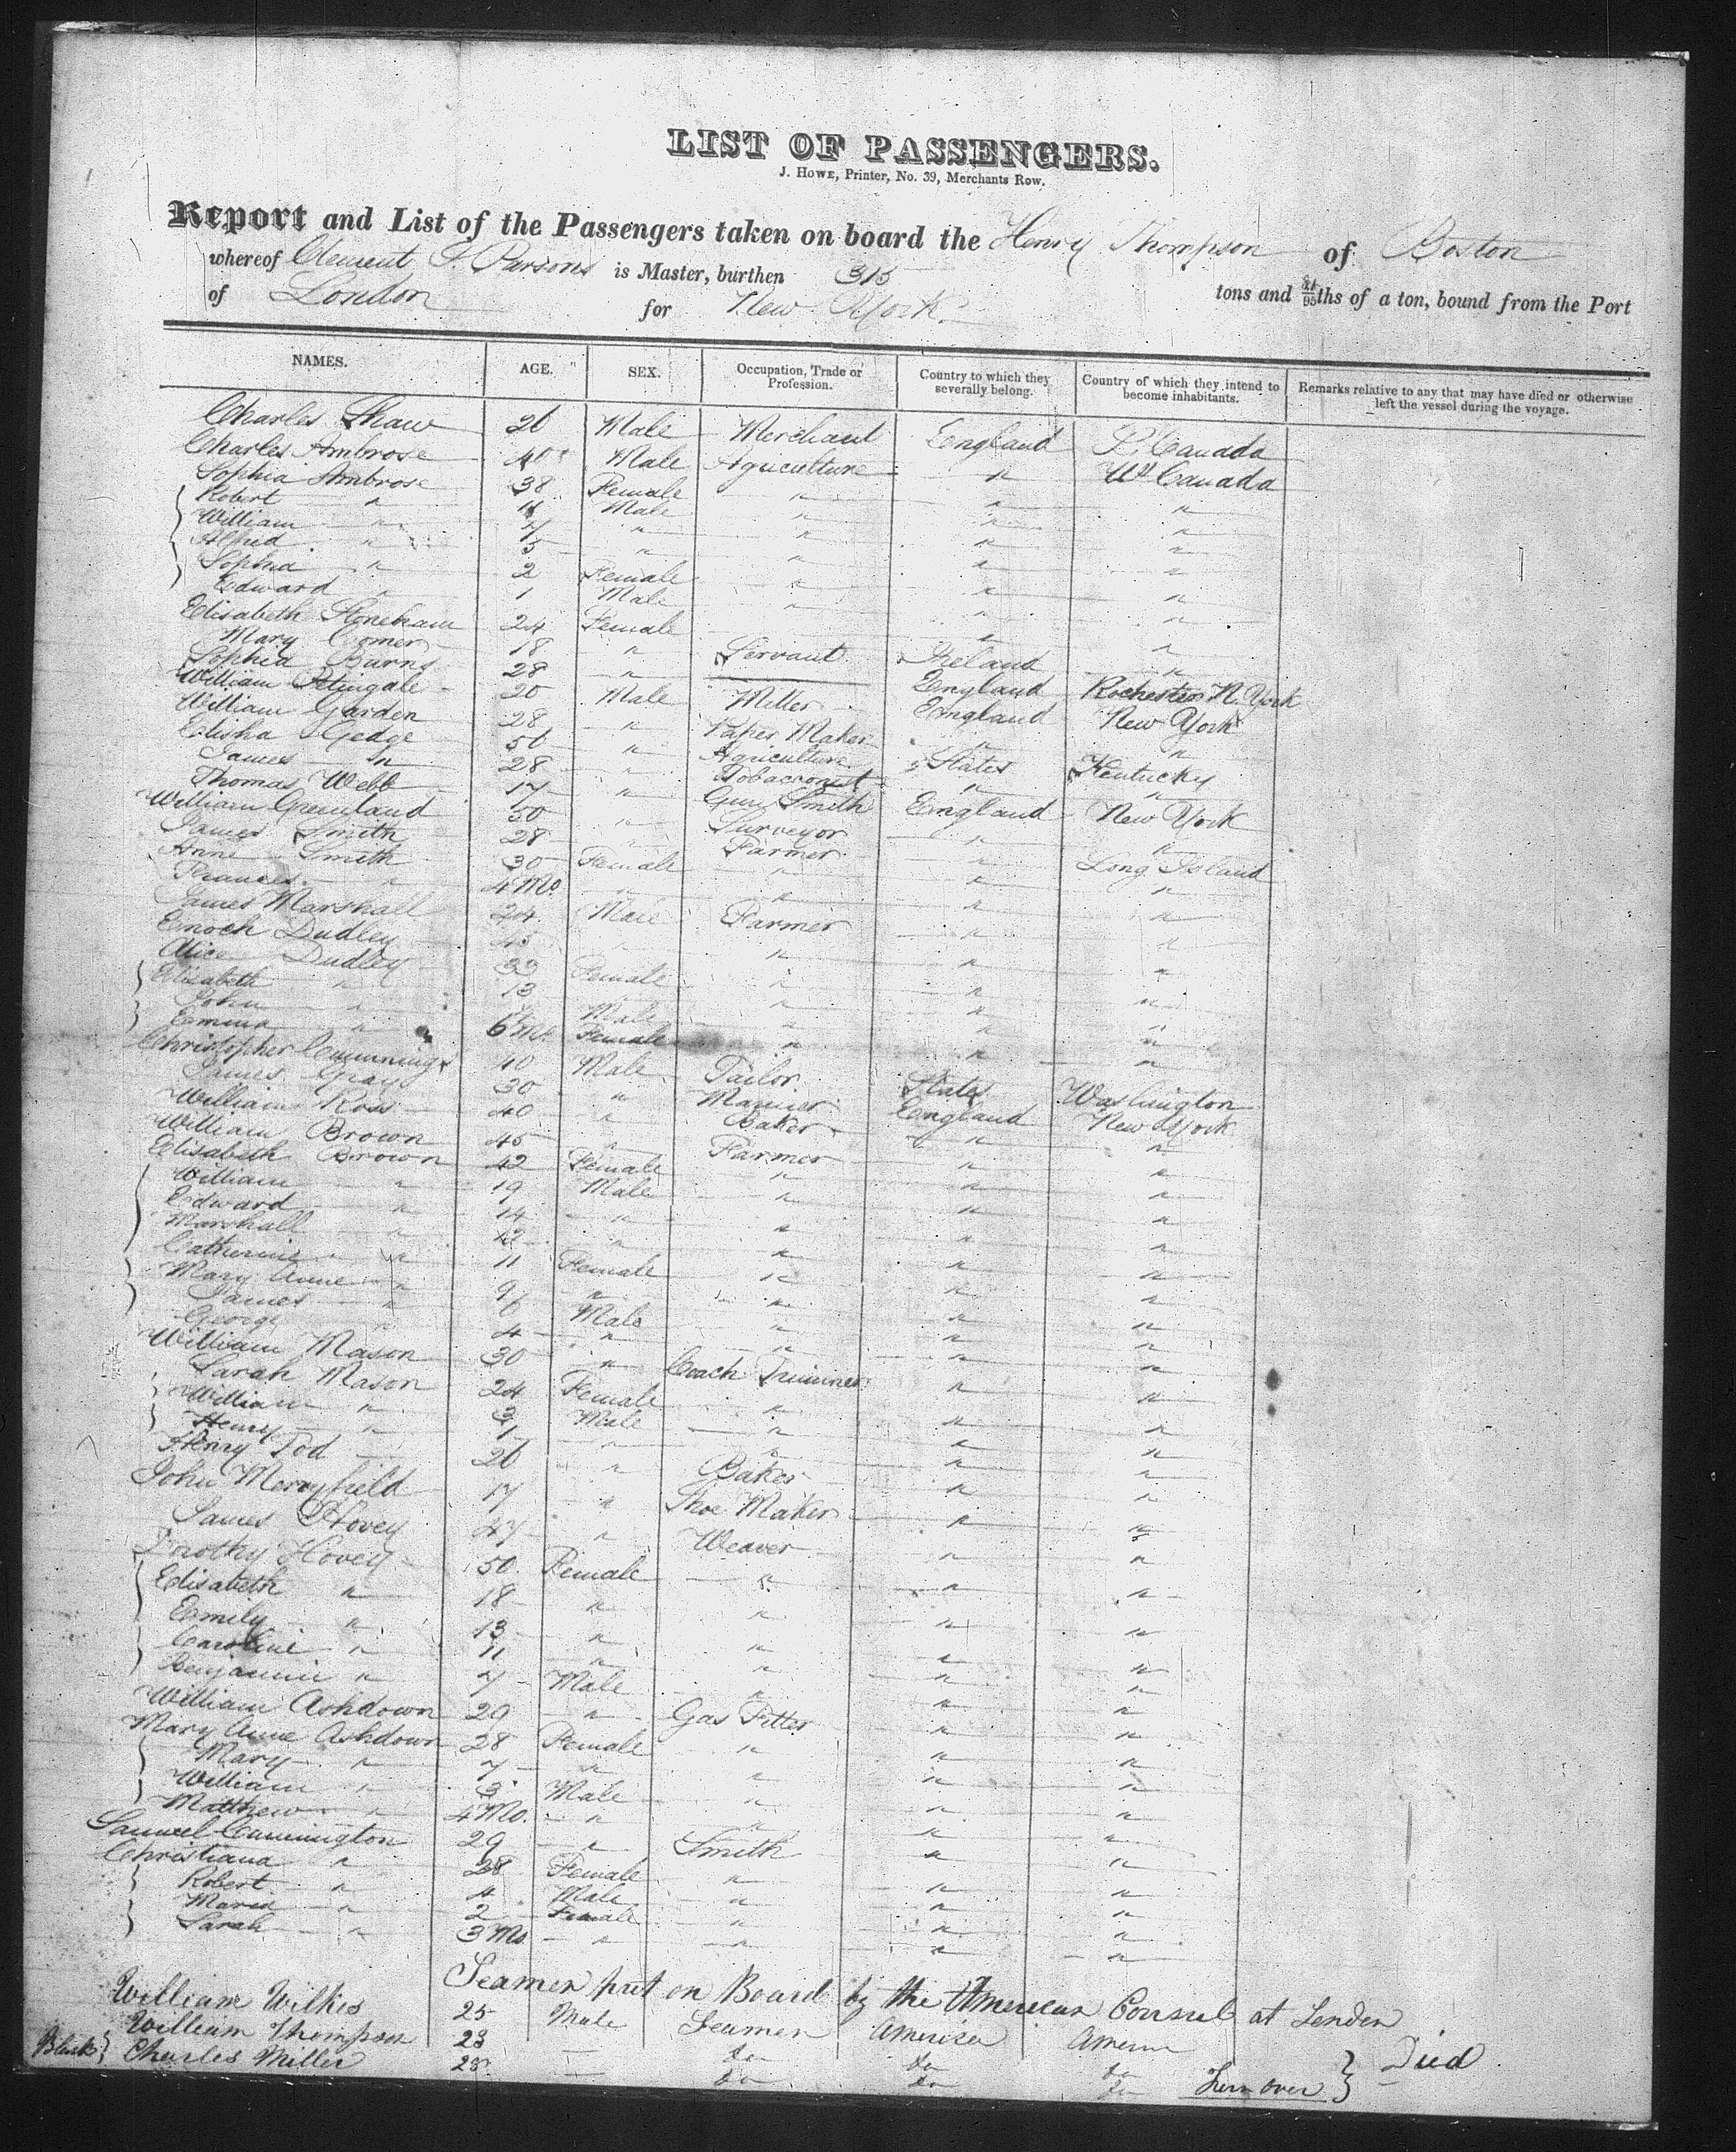 LIST OF PASSENGERS.
J. Howe, Printer, No. 39, Merchants Row.
Report and List of the Passengers taken on board the Henry Thompson of Boston
whereof Clement P. Parsons is Master, burthen 315 tons and /95ths of a ton, bound from the Port
of London for New York
NAMES. AGE. SEX. Occupation, Trade or Profession. Country to which they severally belong. Country of which they intend to become inhabitants. Remarks relative to any that may have died or otherwise left the vessel during the voyage.
Charles Shaw 26 Male Merchant England Canada
Charles Ambrose 40 Male Agriculture " Canada
Sophia Ambrose 38 Female " " "
Robert " Male " " "
William " 7 " " " "
Alfred " 5 " " " "
Sophia " 2 Female " " "
Edward " 1 Male " " "
Elisabeth Stoneham 24 Female " "
Mary Comer 18 " Servant Ireland "
Sophia Burns 28 " England Rochester N. York
William Petingale 20 Male Miller England New York
William Garden 28 " Paper Maker " "
Elisha Gedge 56 " Agriculture States Kentucky
James Do 28 " Tobacconist " "
Thomas Webb 17 " Gun Smith England New York
William Greenland 50 " Surveyor " "
James Smith 28 Farmer " Long Island
Anne Smith 30 Female " " "
Frances " 4 Mo. " " " "
James Marshall 24 Male Farmer " "
Enoch Dudley 45 " " " "
Alice Dudley 33 Female " " "
Elizabeth " 13 " " "
John " Male " " "
Emma " 6 Mo. Female " " "
Christopher Cummings 40 Male Tailor States Washington
James Gray 30 " Mariner England New York
William Ross 40 " Baker " "
William Brown 45 " Farmer " "
Elisabeth Brown 42 Female " " "
William " 19 Male " " "
Edward " 14 " " " "
Marshall " 12 " " " "
Catherine " 11 Female " " "
Mary Anne " 9 " " " "
James " 6 Male " " "
George " 4 " " " "
William Mason 30 " Coach Trimmer " "
Sarah Mason 24 Female " " "
William " 3 Male " " "
Henry " 1 " " " "
Henry Tod 26 " Baker " "
John Merryfield 17 " Shoe Maker " "
James Hovey 47 " Weaver " "
Dorothy Hovey 50 Female " " "
Elisabeth " 18 " " " "
Emily " 13 " " " "
Caroline " 11 " " " "
Benjamin " 7 Male " " "
William Ashdown 29 " Gas Fitter " "
Mary Anne Ashdown 28 Female " " "
Mary " 7 " " " "
William " 3 Male " " "
Matthew " 4 Mo. " " " "
Samuel Cannington 29 " Smith " "
Christiana " 28 Female " " "
Robert " 4 Male " " "
Maria " 2 Female " " "
Sarah " 3 Mo " " " "
Seamen put on Board by the American Consul at London
William Wilkis 25 Male Seamen America America
William Thompson 23 — do do do } Died
Black } Charles Miller 25 — do do do Turn over